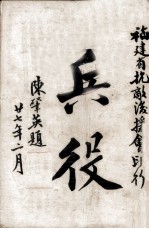 福建省抗敵後援會印行
兵役
陳肇英題
廿七年二月